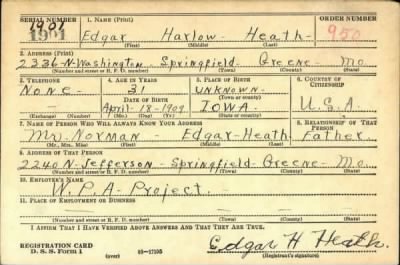 SERIAL NUMBER 1. NAME (Print) ORDER NUMBER
1901
1901 Edgar Harlow Heath 950
(First) (Middle) (Last)
2. ADDRESS (Print)
2336-N-Washington- Springfield Greene- Mo.
(Number and street or R. F. D. number) (Town) (County) (State)
3. TELEPHONE 4. AGE IN YEARS 5. PLACE OF BIRTH 6. COUNTRY OF CITIZENSHIP
None- 31 unknown-
DATE OF BIRTH (Town or county)
April-18-1909 Iowa- U.S.A
(Exchange) (Number) (Mo.) (Day) (Yr.) (State or country)
7. NAME OF PERSON WHO WILL ALWAYS KNOW YOUR ADDRESS 8. RELATIONSHIP OF THAT PERSON
Mr-Norman- Edgar-Heath Father-
(Mr., Mrs., Miss) (First) (Middle) (Last)
9. ADDRESS OF THAT PERSON
2240N-Jefferson- Springfield-Greene- Mo-
(Number and street or R. F. D. number) (Town) (County) (State)
10. EMPLOYER'S NAME
W.P.A- Project-
11. PLACE OF EMPLOYMENT OR BUSINESS
(Number and street or R. F. D. number) (Town) (County) (State)
I AFFIRM THAT I HAVE VERIFIED ABOVE ANSWERS AND THAT THEY ARE TRUE.
REGISTRATION CARD Edgar H Heath.
D. S. S. Form 1 (Registrant's signature)